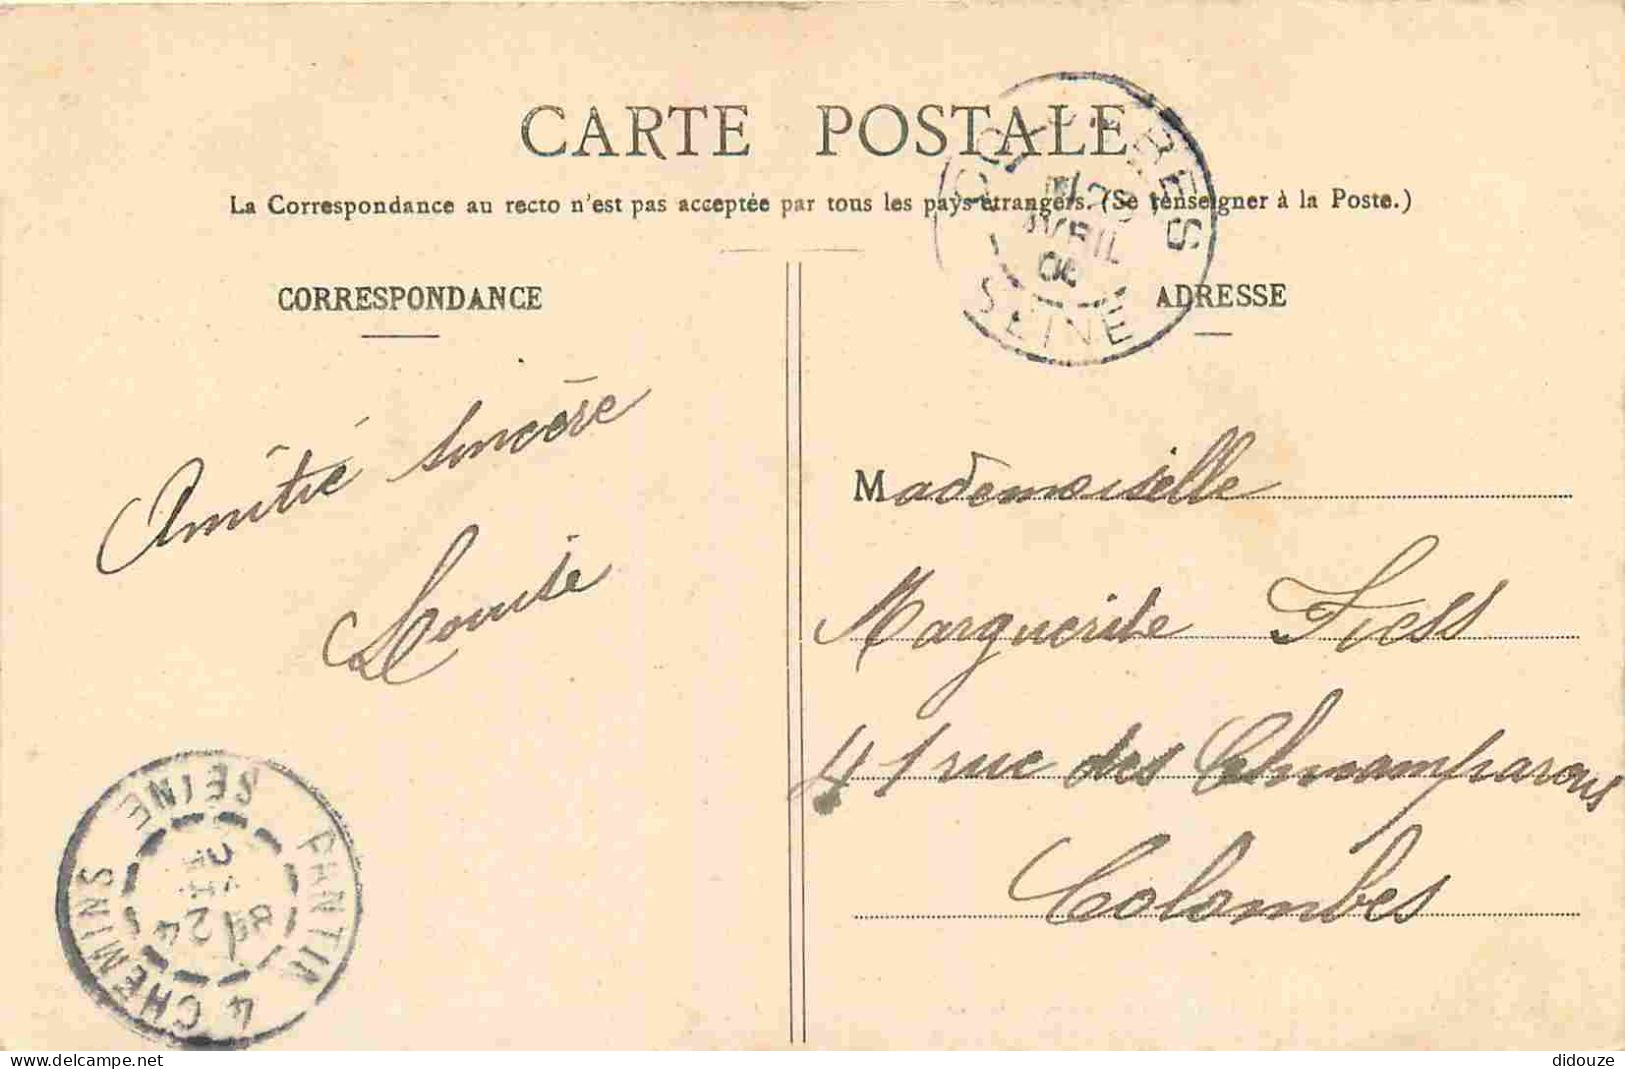 CARTE POSTALE
La Correspondance au recto n'est pas acceptée par tous les pays étrangers. (Se renseigner à la Poste.)
COLOMBES
AVRIL
06
SEINE
CORRESPONDANCE
ADRESSE
Amitié sincère
Louise
Mademoiselle
Marguerite Fiess
41 rue des Champarons
Colombes
PANTIN
4 CHEMINS
SEINE
24
www.delcampe.net
didouze